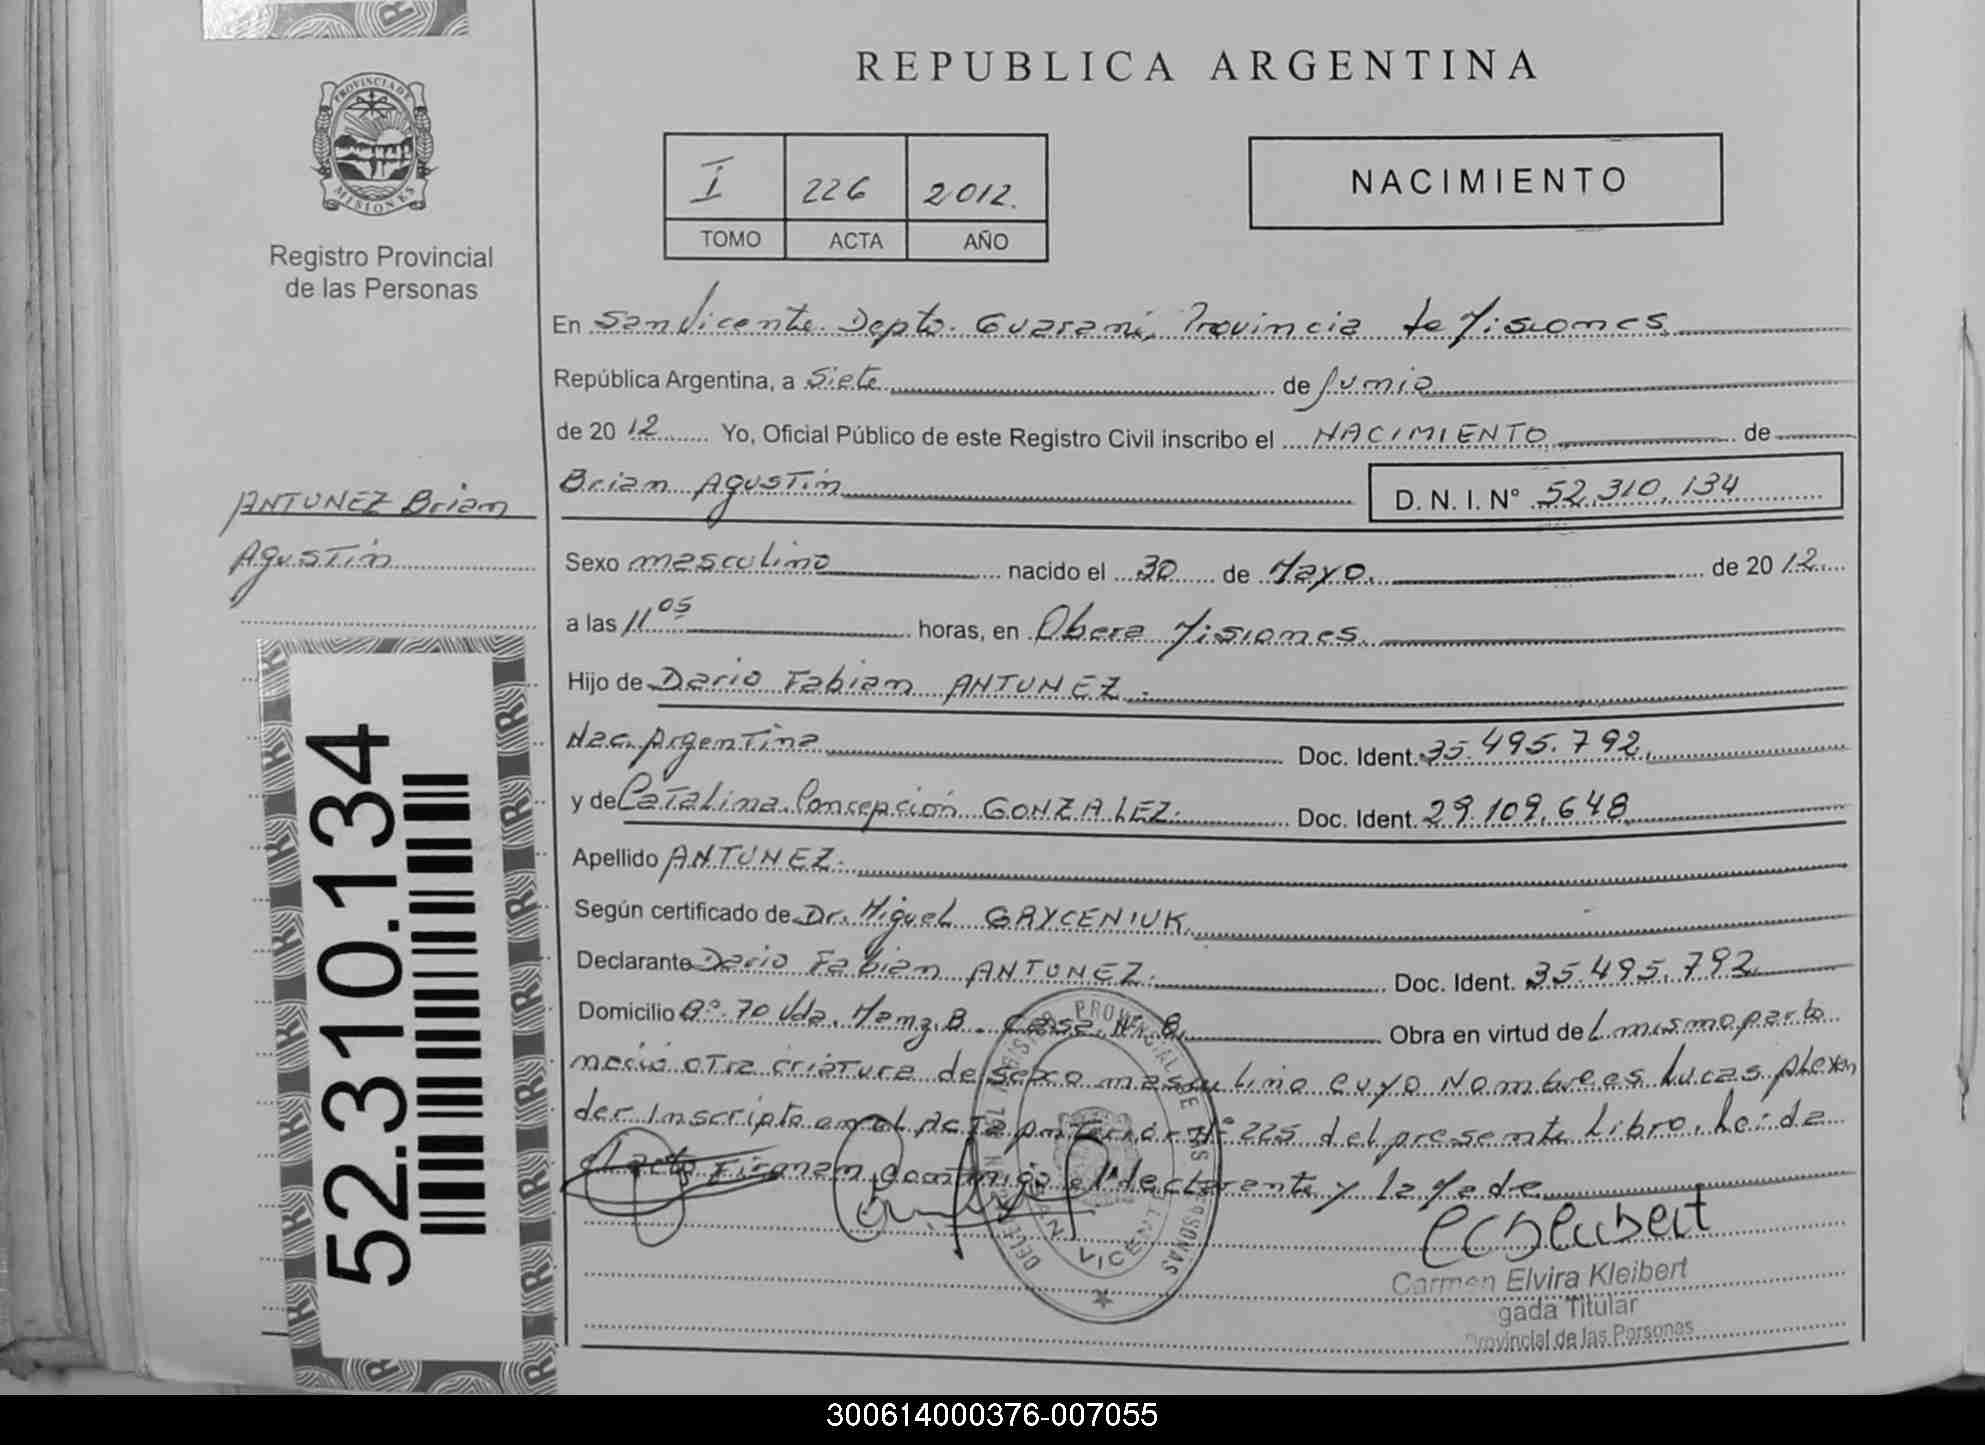 REPUBLICA ARGENTINA
PROVINCIA DE
MISIONES
Registro Provincial
de las Personas
I 226 2012.
TOMO ACTA AÑO
NACIMIENTO
En San Vicente Depto. Guaraní, Provincia de Misiones
República Argentina, a Siete de Junio
de 2012 Yo, Oficial Público de este Registro Civil inscribo el NACIMIENTO de
Brian Agustín D. N. I. N° 52.310.134
ANTUNEZ Brian
Agustín
Sexo masculino nacido el 30 de Mayo. de 2012
a las 11 05 horas, en Obera Misiones.
Hijo de Dario Fabian ANTUNEZ.
Nac. Argentina Doc. Ident. 35.495.792
y de Catalina Concepción GONZALEZ. Doc. Ident. 29.109.648
Apellido ANTUNEZ.
Según certificado de Dr. Miguel GRYCENIUK.
Declarante Dario Fabian ANTUNEZ. Doc. Ident. 35.495.792
Domicilio Bº. 70 Vda. Manz. B. Casa Nº 8. Obra en virtud del mismo parto
nació otra criatura de sexo masculino cuyo Nombre es Lucas Alexan
der Inscripto en el Acta Anterior Nº 225 del presente Libro. Leída
el acta Firman conmigo el declarante y la Madre
52.310.134
SAN VICENTE
Carmen Elvira Kleibert
gada Titular
Provincial de las Personas
300614000376-007055